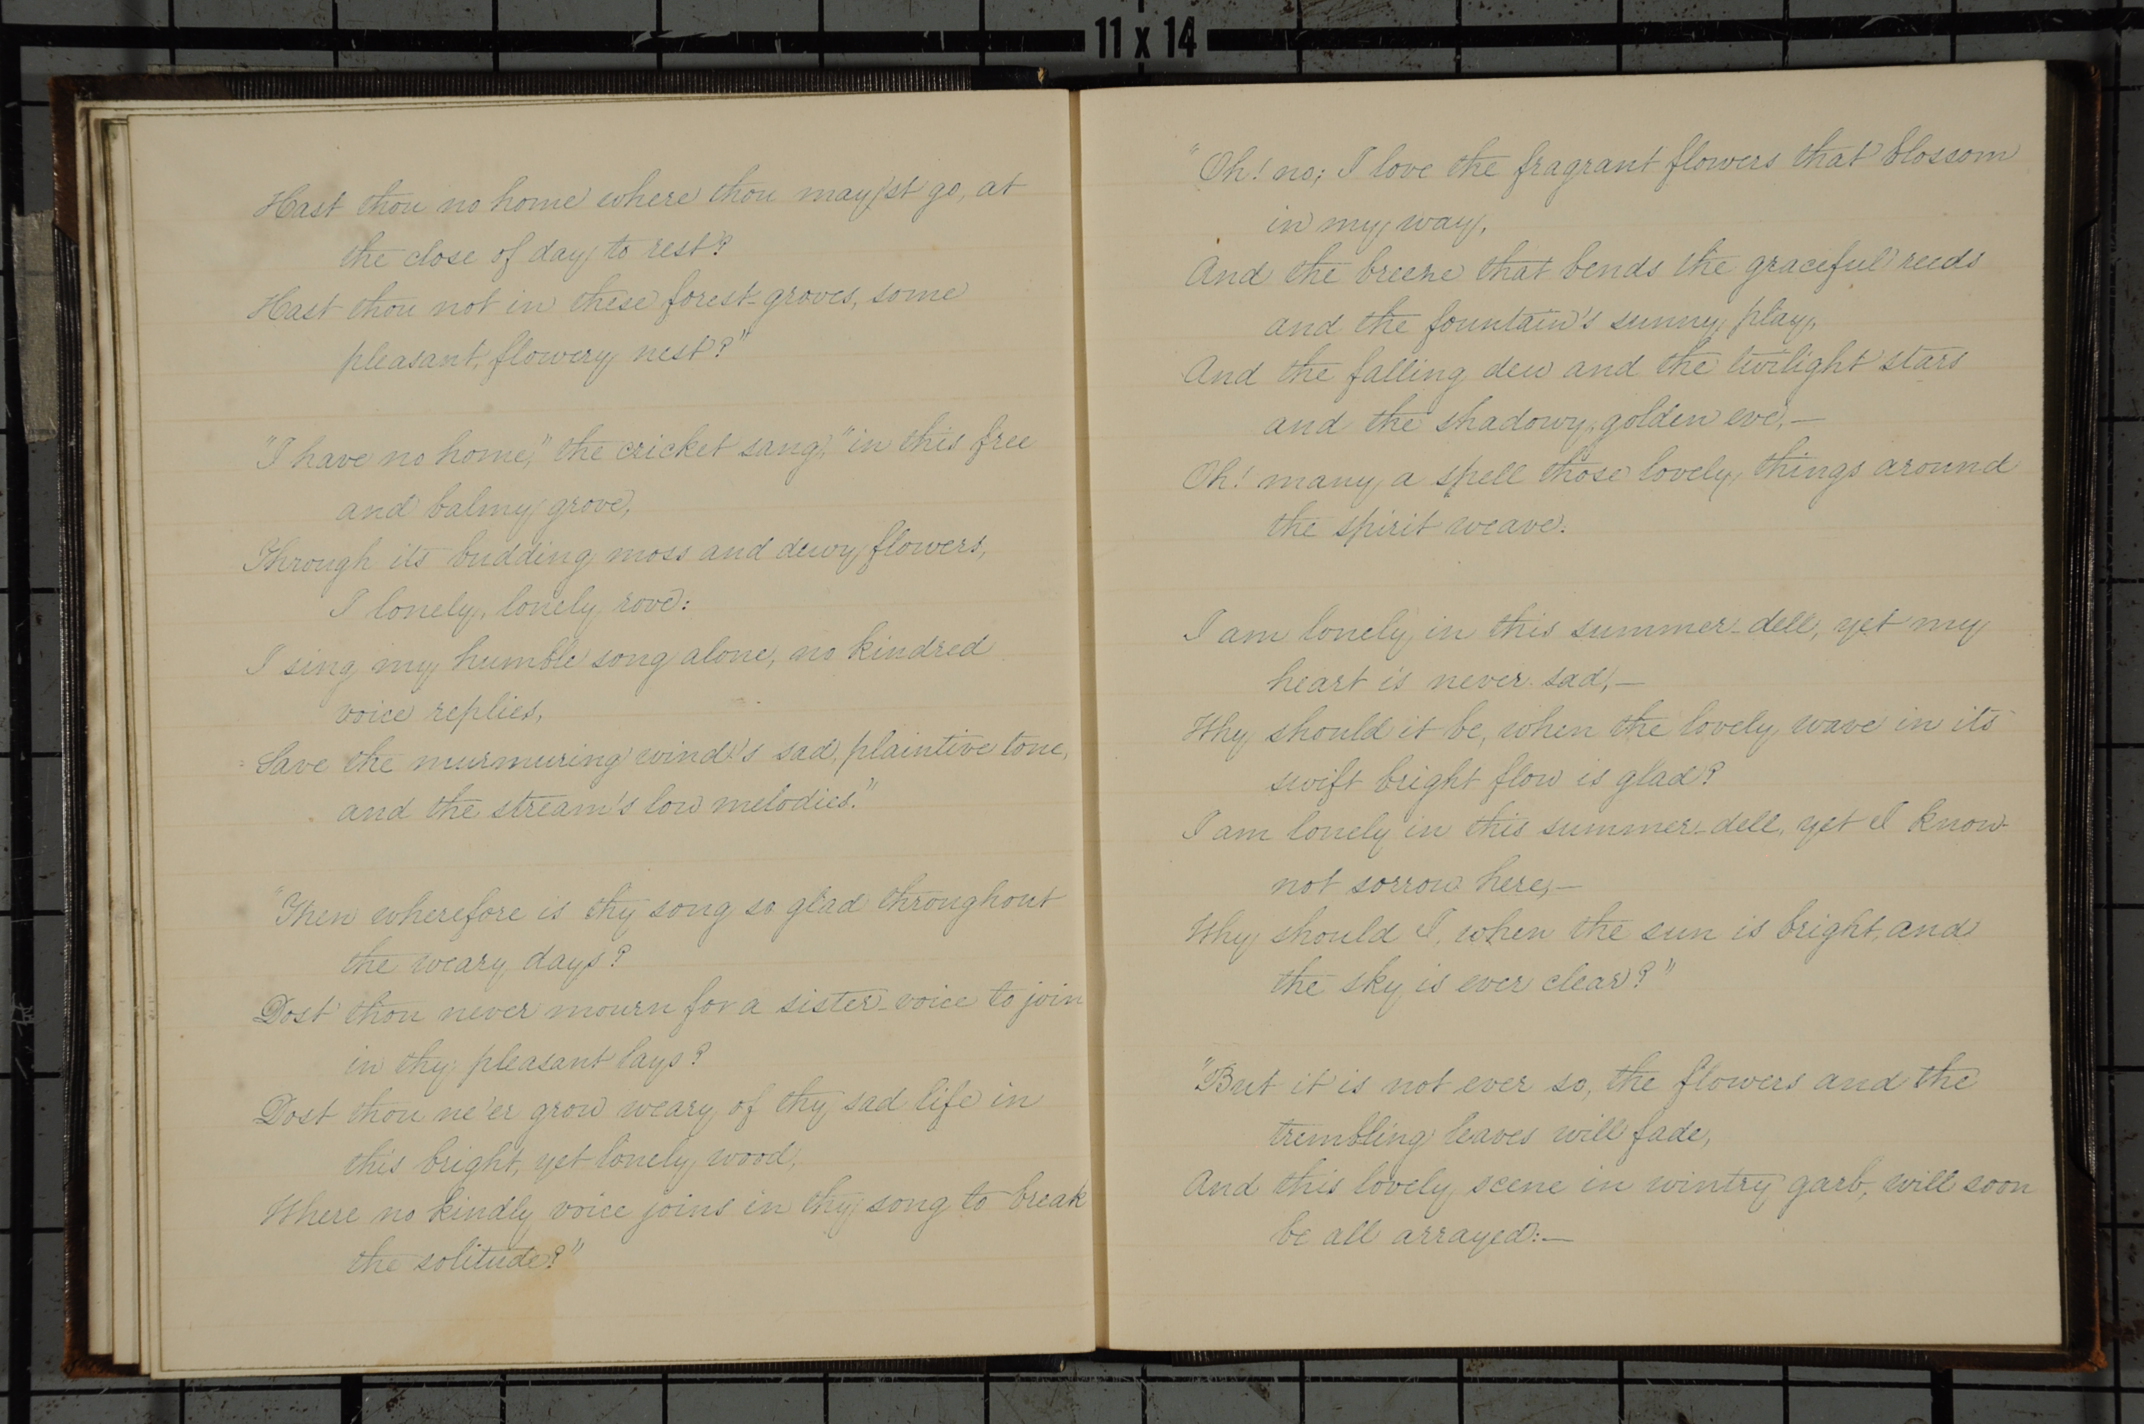 11 x 14
Hast thou no home where thou may'st go, at
the close of day to rest?
Hast thou not in these forest-groves, some
pleasant, flowery nest?"
"I have no home," the cricket sang, "in this free
and balmy grove,
Through its budding moss and dewy flowers,
I lonely, lonely rove:
I sing my humble song alone, no kindred
voice replies,
Save the murmuring wind's sad, plaintive tone,
and the stream's low melodies."
"Then wherefore is thy song so glad throughout
the weary days?
Dost thou never mourn for a sister-voice to join
in thy pleasant lays?
Dost thou ne'er grow weary of thy sad life in
this bright, yet lonely wood,
Where no kindly voice joins in thy song to break
the solitude?"
"Oh! no; I love the fragrant flowers that blossom
in my way,
And the breeze that bends the graceful reeds
and the fountain's sunny play,
And the falling dew and the twilight stars
and the shadowy, golden eve,—
Oh! many a spell those lovely things around
the spirit weave.
I am lonely in this summer-dell, yet my
heart is never sad,—
Why should it be, when the lovely wave in its
swift bright flow is glad?
I am lonely in this summer-dell, yet I know
not sorrow here,—
Why should I, when the sun is bright, and
the sky is ever clear?"
"But it is not ever so, the flowers and the
trembling leaves will fade,
And this lovely scene in wintry garb, will soon
be all arrayed:—